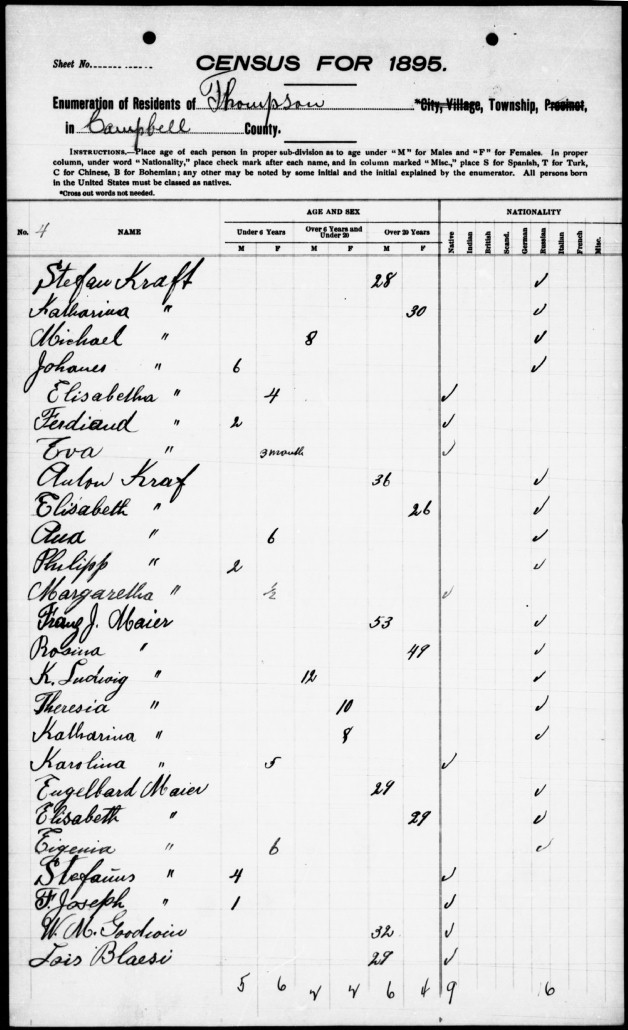 Sheet No.
CENSUS FOR 1895.
Enumeration of Residents of Thompson *City, Village, Township, Precinct,
in Campbell County.
INSTRUCTIONS.—Place age of each person in proper sub-division as to age under "M" for Males and "F" for Females. In proper
column, under word "Nationality," place check mark after each name, and in column marked "Misc.," place S for Spanish, T for Turk,
C for Chinese, B for Bohemian; any other may be noted by some initial and the initial explained by the enumerator. All persons born
in the United States must be classed as natives.
*Cross out words not needed.
AGE AND SEX NATIONALITY
No. 4 NAME Under 6 Years Over 6 Years and Under 20 Over 20 Years Native Indian British Scand. German Russian Italian French Misc.
M F M F M F
Stefan Kraft 28 ✓
Katharina " 30 ✓
Michael " 8 ✓
Johanes " 6 ✓
Elisabetha " 4 ✓
Ferdiand " 2 ✓
Eva " 3 month ✓
Anton Kraf 36 ✓
Elisabeth " 26 ✓
Ana " 6 ✓
Philipp " 2 ✓
Margaretha " ½ ✓
Franz J. Maier 53 ✓
Rosina " 49 ✓
K. Ludwig " 12 ✓
Theresia " 10 ✓
Katharina " 8 ✓
Karolina " 5 ✓
Engelbard Maier 29 ✓
Elisabeth " 29 ✓
Eigenia " 6 ✓
Stefanus " 4 ✓
F. Joseph " 1 ✓
W. M. Goodwin 32 ✓
Lois Blaesi 29 ✓
5 6 2 2 6 4 9 16